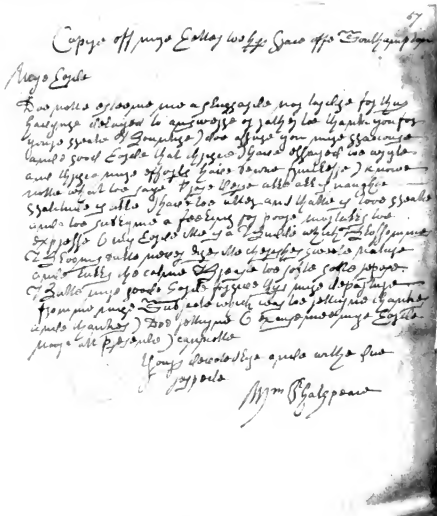 67
Copye off mye Letter toe hys Grace offe Southampton
Mye Lorde
Doe notte esteeme me a sluggarde nor tardye for thus
havyinge delayed to answerre or rather toe thank you for
youre greate Bountye I doe assure you mye graciouse
ande good Lorde that thryce I have essayed toe wryte
and thryce mye efforts have benne fruitlesse I knowe
notte what toe saye Prose Verse alle all is naughte
gratitude is alle I have toe utter and thatte is tooe greate
ande tooe sublyme a feeling for poore mortalls toe
expresse O my Lord itte is a Budde which Bllossommes
Bllooms butte never dyes itte cherishes sweete Nature
ande lulls the calme Breaste toe softe softe repose
Butte mye goode Lorde forgive thys mye departure
fromme mye Subjecte which was toe retturne thankes
ande thankes I Doe retturne O excuse mee mye Lorde
more at presente I cannotte
Yours devotedlye ande withe due
respecte
Wm Shakspeare